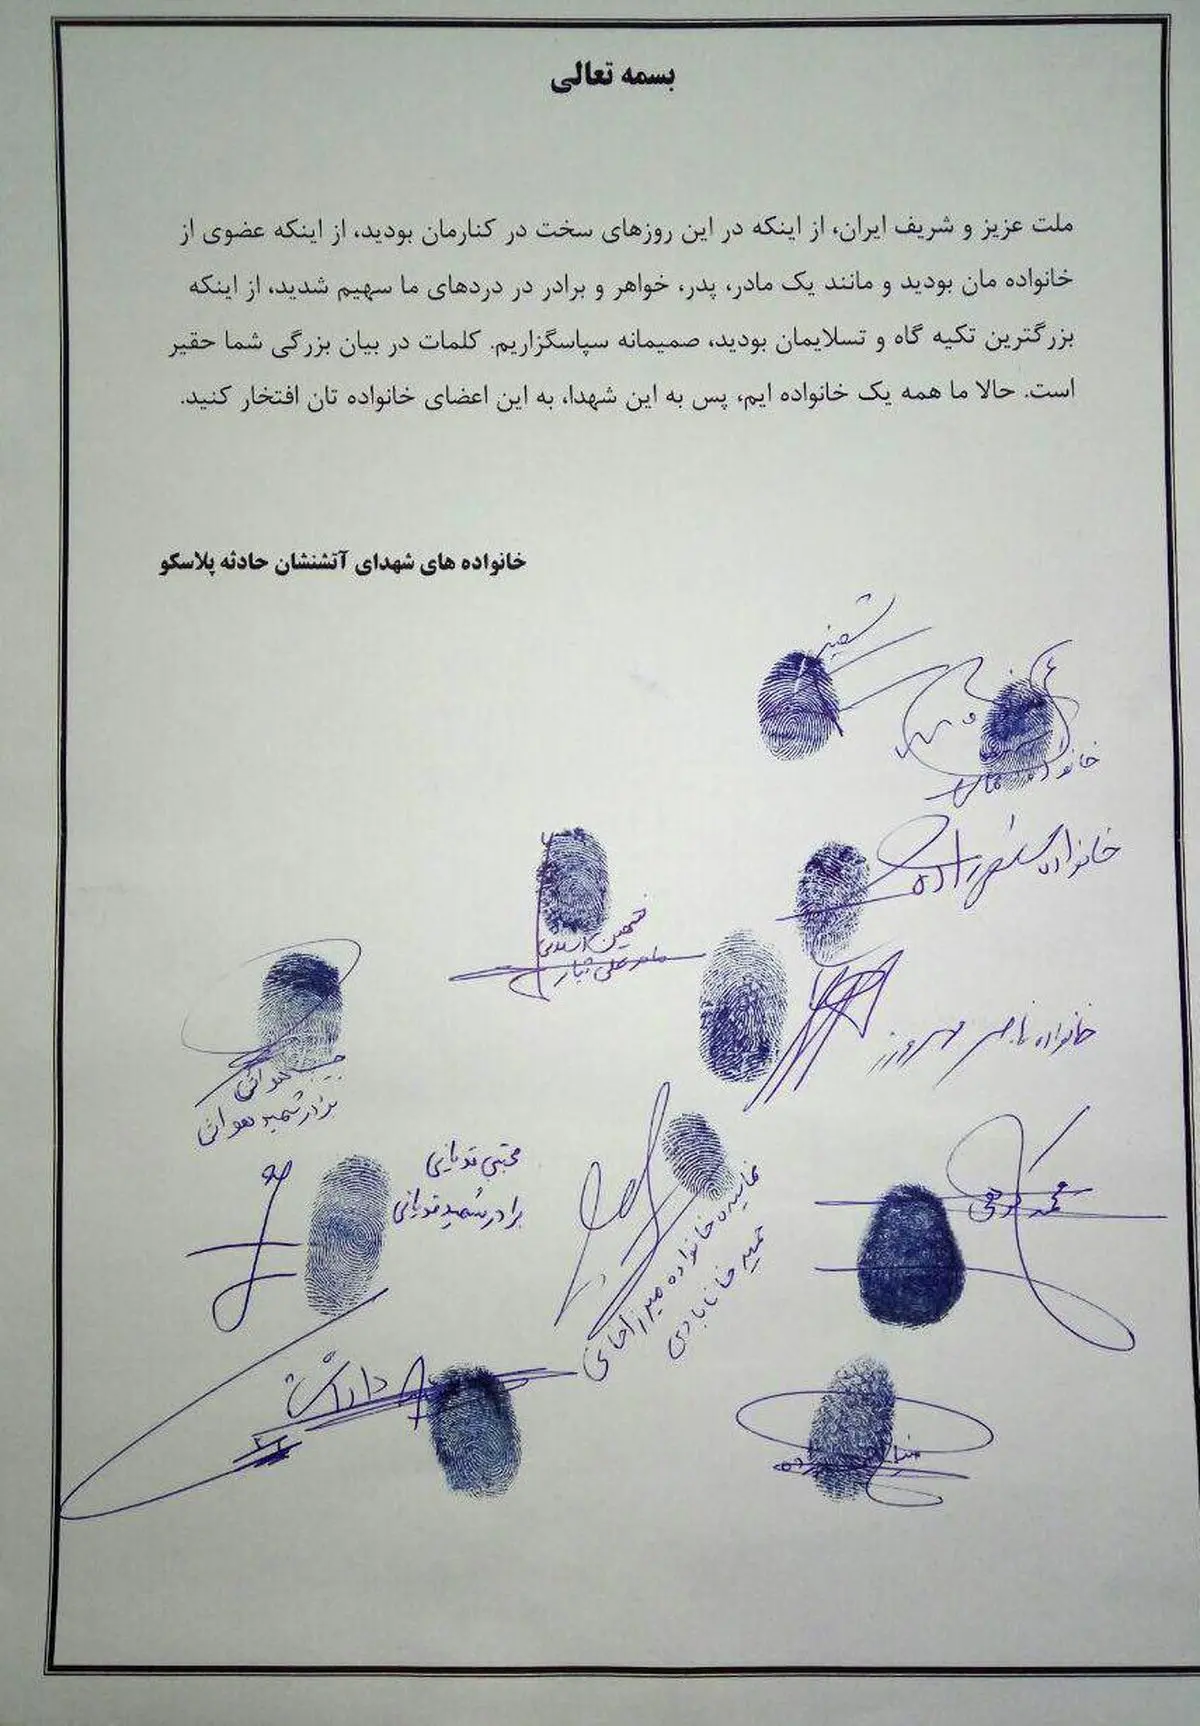 بسمه تعالی
ملت عزیز و شریف ایران، از اینکه در این روزهای سخت در کنارمان بودید، از اینکه عضوی از
خانواده مان بودید و مانند یک مادر، پدر، خواهر و برادر در دردهای ما سهیم شدید، از اینکه
بزرگترین تکیه گاه و تسلایمان بودید، صمیمانه سپاسگزاریم. کلمات در بیان بزرگی شما حقیر
است. حالا ما همه یک خانواده ایم، پس به این شهدا، به این اعضای خانواده تان افتخار کنید.
خانواده های شهدای آتشنشان حادثه پلاسکو
خانواده
خانواده
خانواده ناصر مهرورز
برادر شهید هوائی
مجتبی قدیانی
برادر شهید قدیانی
نماینده خانواده میرزاخانی
محمد